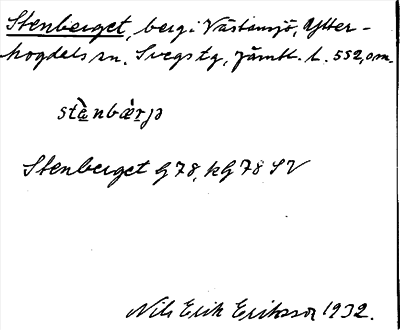 Stenberget, berg i Västansjö, Ytter-
hogdals sn. Svegs tg, Jämtl. l. 552,0 m.
stὲnbæ̀rjə
Stenberget G 78, kG 78 SV
Nils Erik Eriksson 1932.